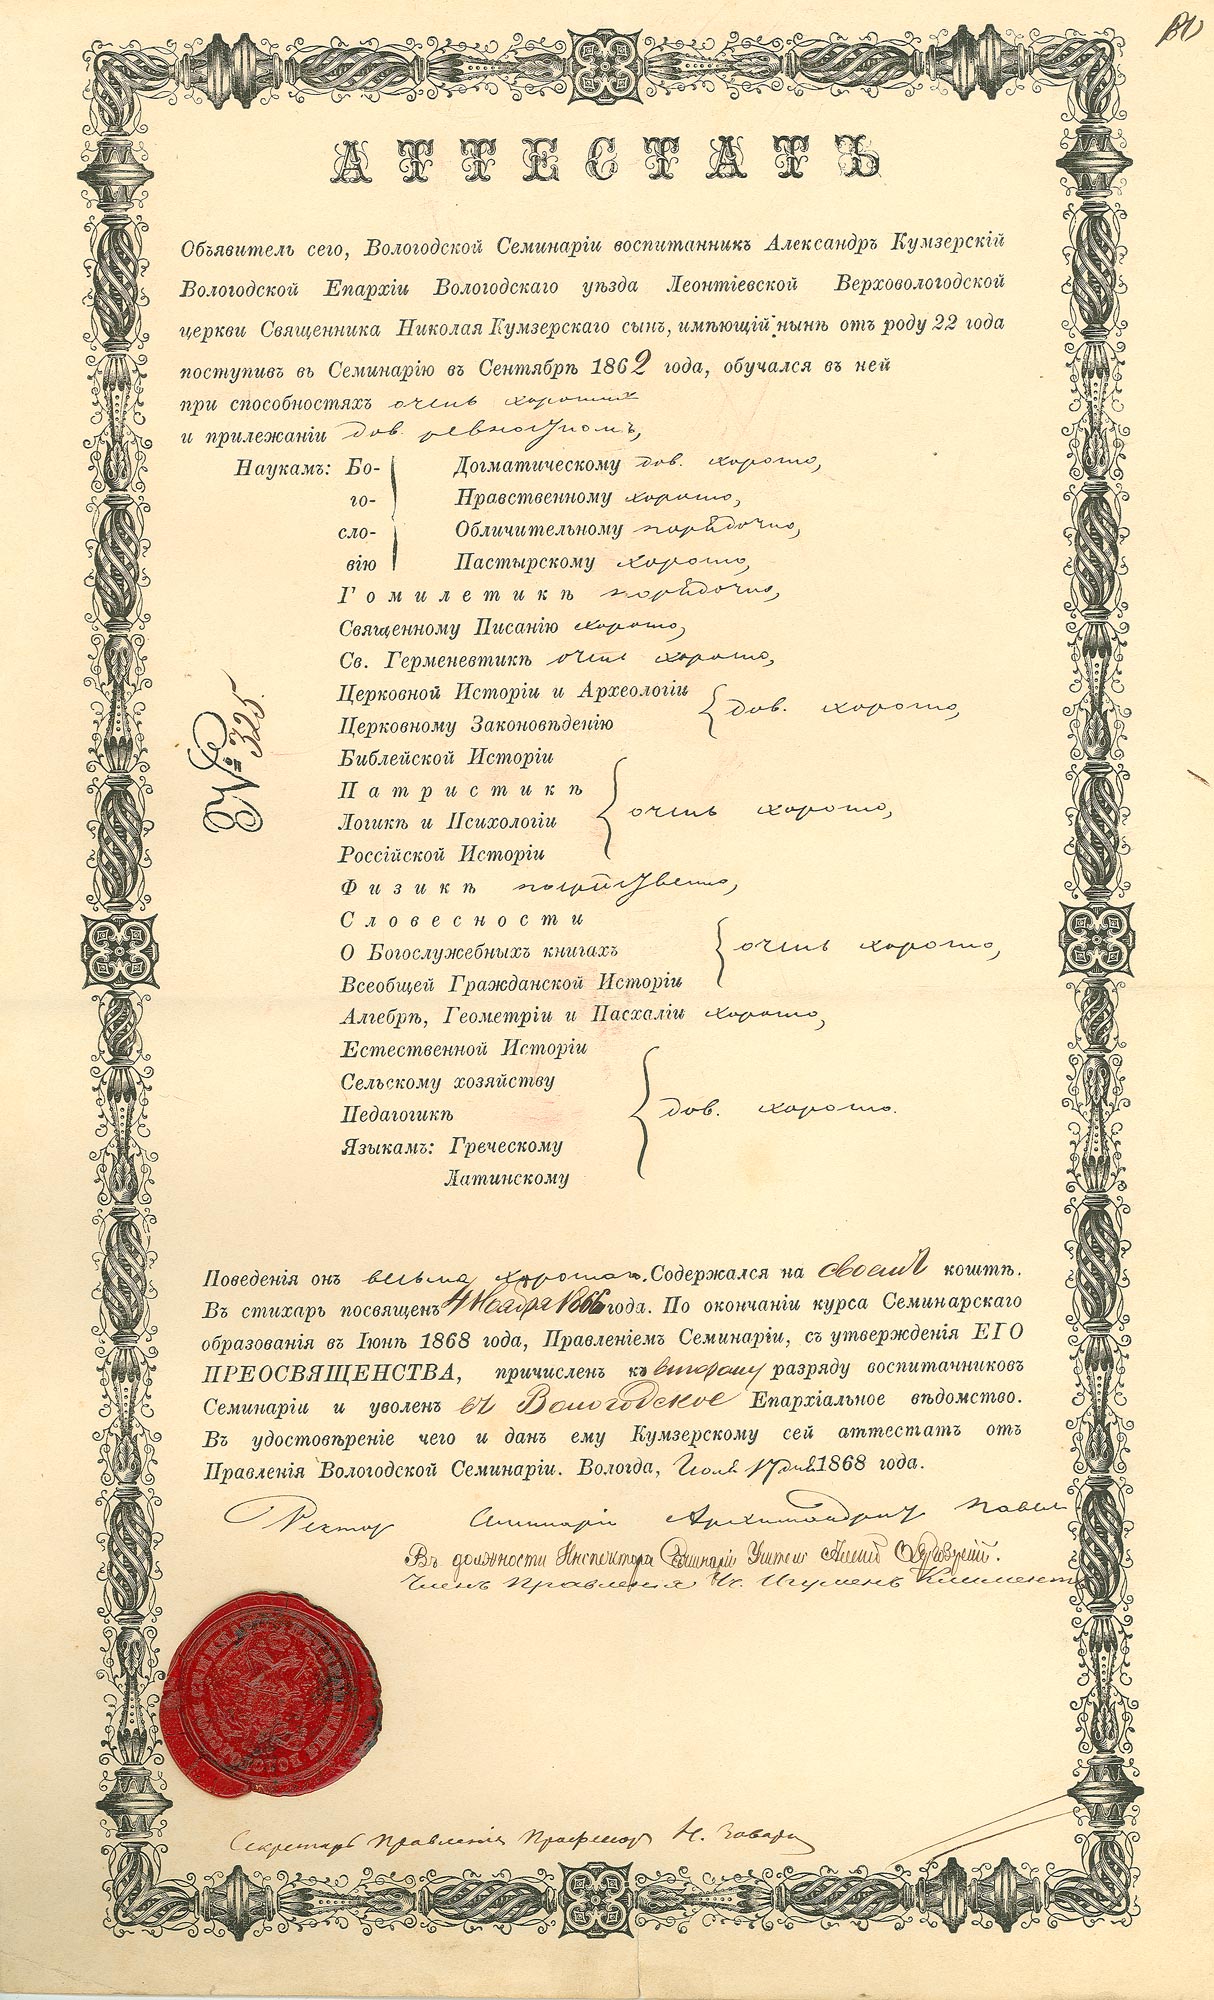 АТТЕСТАТЪ
Объявитель сего, Вологодской Семинаріи воспитанникъ Александръ Кумзерскій
Вологодской Епархіи Вологодскаго уѣзда Леонтіевской Верховологодской
церкви Священника Николая Кумзерскаго сынъ, имѣющій нынѣ отъ роду 22 года
поступивъ въ Семинарію въ Сентябрѣ 1862 года, обучался въ ней
при способностяхъ очень хорошихъ
и прилежаніи дов. ревностномъ,
Наукамъ: Бо- Догматическому дов. хорошо,
го- Нравственному хорошо,
сло- Обличительному порядочно,
вію Пастырскому хорошо,
Гомилетикѣ порядочно,
Священному Писанію хорошо,
Св. Герменевтикѣ очень хорошо,
Церковной Исторіи и Археологіи
Церковному Законовѣденію
дов. хорошо,
Библейской Исторіи
Патристикѣ
Логикѣ и Психологіи
Россійской Исторіи
очень хорошо,
№ 325.
Физикѣ
Словесности
О Богослужебныхъ книгахъ
Всеобщей Гражданской Исторіи
очень хорошо,
Алгебрѣ, Геометріи и Пасхаліи хорошо,
Естественной Исторіи
Сельскому хозяйству
Педагогикѣ
Языкамъ: Греческому
Латинскому
дов. хорошо.
Поведенія онъ весьма хорошаго. Содержался на своемъ коштѣ.
Въ стихарь посвященъ 4 Ноября 1866 года. По окончаніи курса Семинарскаго
образованія въ Іюнѣ 1868 года, Правленіемъ Семинаріи, съ утвержденія ЕГО
ПРЕОСВЯЩЕНСТВА, причисленъ къ второму разряду воспитанниковъ
Семинаріи и уволенъ въ Вологодское Епархіальное вѣдомство.
Въ удостовѣреніе чего и данъ ему Кумзерскому сей аттестатъ отъ
Правленія Вологодской Семинаріи. Вологда, Іюля 17 дня 1868 года.
Ректор Семинаріи Архимандритъ Павел
Въ должности Инспектора Семинаріи Учитель
Членъ Правленія Игуменъ Климентъ
Секретарь Правленія Профессор Н.